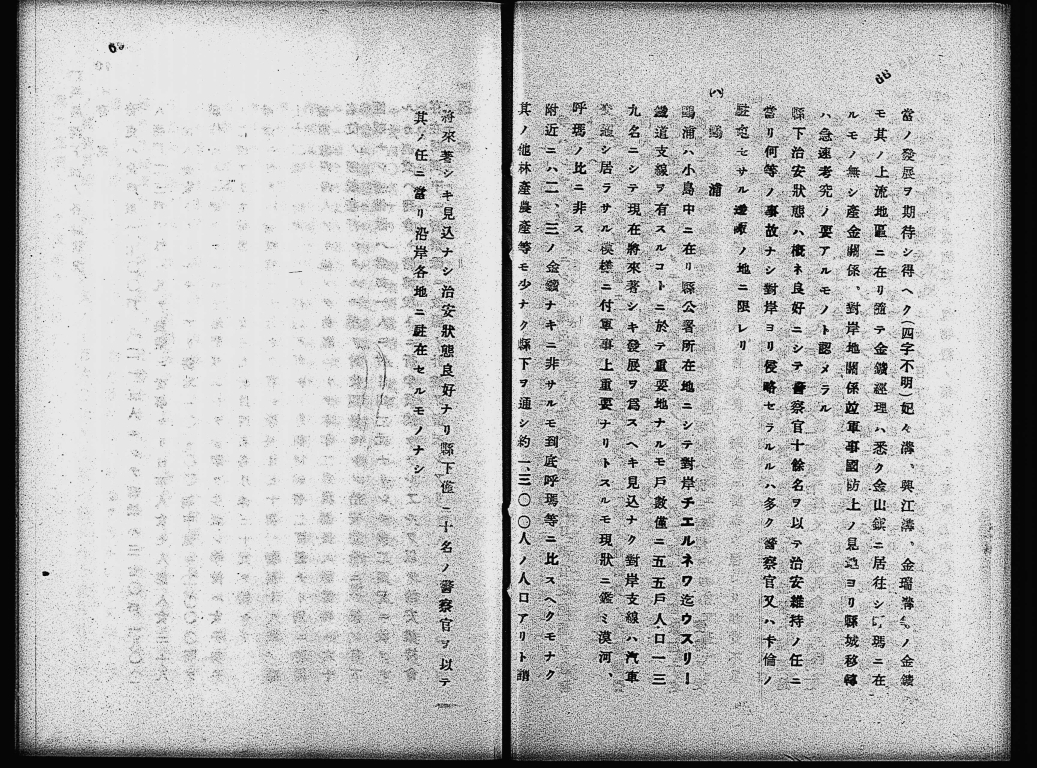 68
當ノ發展ヲ期待シ得ヘク(四字不明)妃々溝、興江溝、金瑞溝等ノ金鑛
モ其ノ上流地區ニ在リ隨テ金鑛經理ハ悉ク金山鎭ニ居往シ呼瑪ニ在
ルモノ無シ產金關係、對岸地關係竝軍事國防上ノ見地ヨリ縣城移轉
ハ急速考究ノ要アルモノト認メラル
縣下治安狀態ハ槪ネ良好ニシテ警察官十餘名ヲ以テ治安維持ノ任ニ
當リ何等ノ事故ナシ對岸ヨリ侵略セラルルハ多ク警察官又ハ卡倫ノ
駐屯セサルノ地ニ限レリ
(ハ) 鷗浦
鷗浦ハ小島中ニ在リ縣公署所在地ニシテ對岸チエルネワ迄ウスリー
鐵道支線ヲ有スルコトニ於テ重要地ナルモ戶數僅ニ五五戶人口一三
九名ニシテ現在將來著シキ發展ヲ爲スヘキ見込ナク對岸支線ハ汽車
交通シ居ラサル模樣ニ付軍事上重要ナリトスルモ現狀ニ鑑ミ漠河、
呼瑪ノ比ニ非ス
附近ニハ二、三ノ金鑛ナキニ非サルモ到底呼瑪等ニ比スヘクモナク
其ノ他林產農產等モ少ナク縣下ヲ通シ約一、三〇〇人ノ人口アリト謂
69
將來著シキ見込ナシ治安狀態良好ナリ縣下僅ニ十名ノ警察官ヲ以テ
其ノ任ニ當リ沿岸各地ニ駐在セルモノナシ